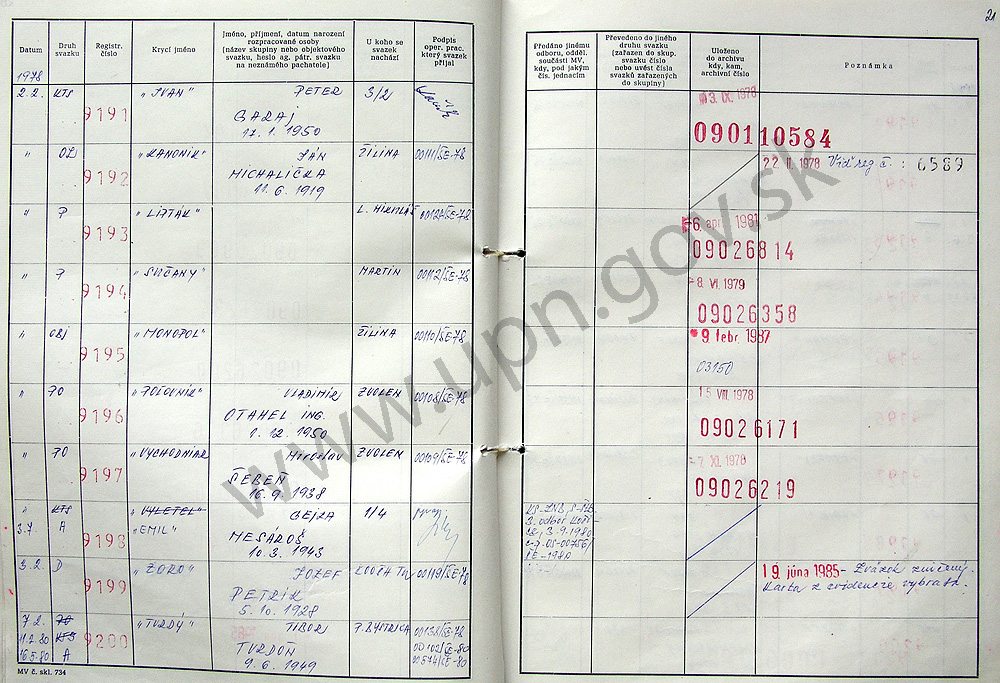 21
Datum
Druh svazku
Registr. číslo
Krycí jméno
Jméno, příjmení, datum narození rozpracované osoby (název skupiny nebo objektového svazku, heslo ag. pátr. svazku na neznámého pachatele)
U koho se svazek nachází
Podpis oper. prac. který svazek přijal
Předáno jinému odboru, odděl. součásti MV, kdy, pod jakým čís. jednacím
Převedeno do jiného druhu svazku (zařazen do skup. svazku číslo nebo uvést čísla svazků zařazených do skupiny)
Uloženo do archivu kdy, kam, archivní číslo
Poznámka
1978
2.2. KTS 9191 "IVAN" PETER 3/2
GARAJ
17. 1. 1950
3. IX. 1978
090110584
" 9192 "KANONIK" JÁN ŽILINA 00111/ŠE-78
MICHALIČKA
11. 6. 1919
22 II. 1978 Viď reg č. : 6589
" P 9193 "LIPTÁK" L. MIKULÁŠ /ŠE-78
6. apr. 1981
09026814
" P 9194 "SUČANY" MARTIN 00112/ŠE-78
-8. VI. 1979
09026358
" OBJ 9195 "MONOPOL" ŽILINA 00110/ŠE-78
9. febr. 1987
03150
" PO 9196 "POĽOVNÍK" VLADIMÍR ZVOLEN 00108/ŠE-78
OTAHEL ING.
1. 12. 1950
15 VIII. 1978
09026171
" PO 9197 "VÝCHODNIAR Miroslav ZVOLEN 00109/ŠE-78
ŠEBEŇ
16. 9. 1938
-7. XI. 1978
09026219
" KTS 9198 "VÝLETEL" GEJZA 1/4
3.7 A "EMIL" MESÁROŠ
10. 3. 1943
3. odbor
3. 9. 1980
ŠE-1980
3.2. D 9199 "ZORO" JOZEF 00119/ŠE-78
PETRÍK
5. 10. 1928
19. júna 1985 - Zväzok zničený.
Karta z evidencie vybratá.
7.2. PO 9200 "TVRDÝ" TIBOR P. BYSTRICA 00138/ŠE-78
11.2.80 KTS TVRDOŇ 00102/ŠE-80
16.5.80 A 9. 6. 1949 00574/ŠE-80
MV č. skl. 734
www.upn.gov.sk